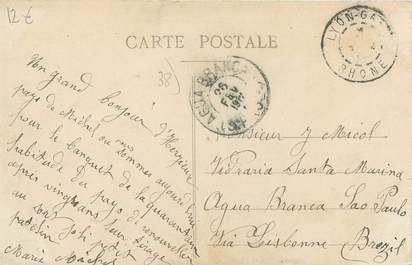 12 €
CARTE POSTALE
LYON-GA
RHONE
38)
AGUA BRANCA
25
FEV
Un grand bonjour d'Heyrieux
pays de Michel ou nous sommes aujourd'hui
pour le banquet de la quarantaine
habitude du pays, à renouveler
après vingt ans sur
au joli petit
patelin
Marie Michel
Monsieur J Micol
Vidraria Santa Marina
Agua Branca Sao Paulo
Via Lisbonne Brezil